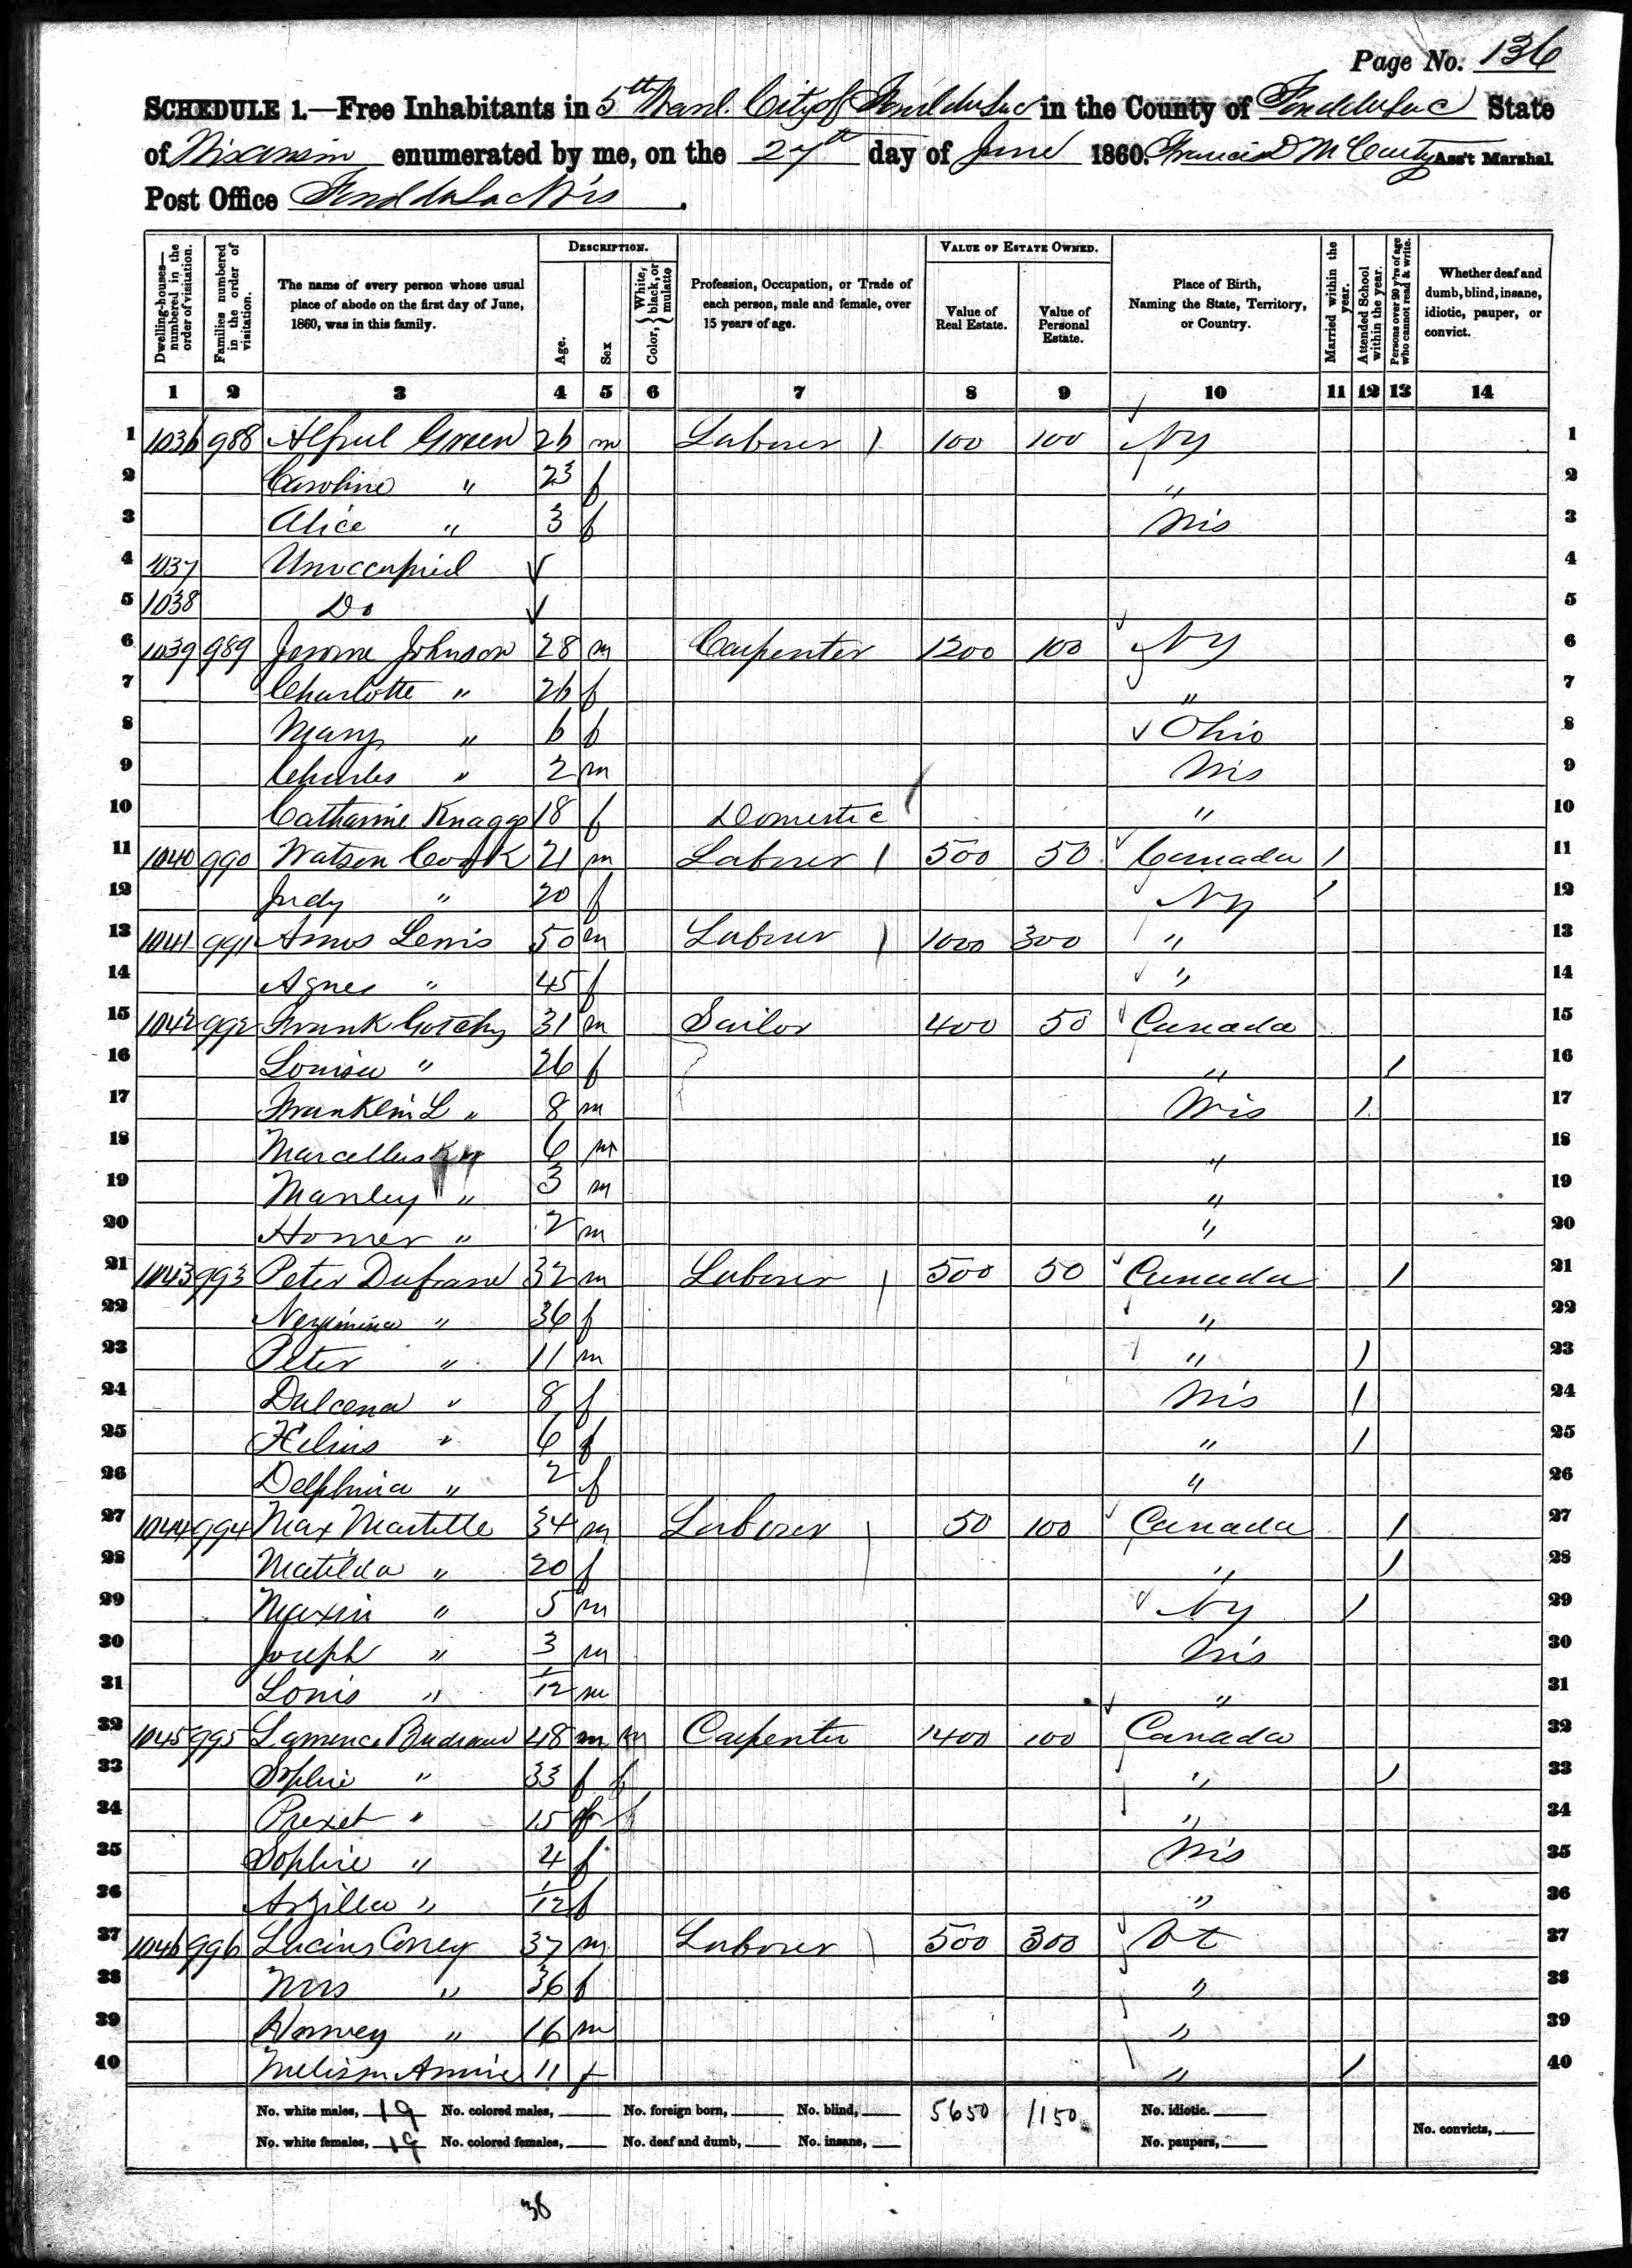 Page No. 136
SCHEDULE 1.—Free Inhabitants in 5th Ward. City of Fond du Lac in the County of Fond du Lac State
of Wisconsin enumerated by me, on the 27th day of June 1860. Francis D McCarty Ass't Marshal
Post Office Fond du Lac Wis.
Dwelling-houses—numbered in the order of visitation. Families numbered in the order of visitation. The name of every person whose usual place of abode on the first day of June, 1860, was in this family. DESCRIPTION. Age. Sex Color, { White, black, or mulatto Profession, Occupation, or Trade of each person, male and female, over 15 years of age. VALUE OF ESTATE OWNED. Value of Real Estate. Value of Personal Estate. Place of Birth, Naming the State, Territory, or Country. Married within the year. Attended School within the year. Persons over 20 y'rs of age who cannot read & write. Whether deaf and dumb, blind, insane, idiotic, pauper, or convict.
1 2 3 4 5 6 7 8 9 10 11 12 13 14
1 1036 988 Alfred Green 26 m Laborer 1 100 100 NY 1
2 Caroline " 23 f " 2
3 Alice " 3 f Wis 3
4 1037 Unoccupied 4
5 1038 Do 5
6 1039 989 Jerome Johnson 28 m Carpenter 1200 100 NY 6
7 Charlotte " 26 f " 7
8 Mary " 6 f Ohio 8
9 Charles " 2 m Wis 9
10 Catharine Knaggs 18 f Domestic " 10
11 1040 990 Watson Cook 21 m Laborer 1 500 50 Canada / 11
12 Judy " 20 f NY / 12
13 1041 991 Amos Lewis 50 m Laborer 1 1000 300 " 13
14 Agnes " 45 f " 14
15 1042 992 Frank Gotchy 31 m Sailor 400 50 Canada 15
16 Louisa " 26 f " / 16
17 Franklin L " 8 m Wis 1 17
18 Marcellus " 6 m " 18
19 Manley " 3 m " 19
20 Homer " 2 m " 20
21 1043 993 Peter Dufrane 32 m Laborer 1 500 50 Canada / 21
22 " 36 f " 22
23 Peter " 11 m " 1 23
24 Dulcena " 8 f Wis 1 24
25 " 6 f " 1 25
26 Delphina " 2 f " 26
27 1044 994 Max Martelle 34 m Laborer 50 100 Canada / 27
28 Matilda " 20 f " / 28
29 Maxin " 5 m NY / 29
30 Joseph " 3 m Wis 30
31 Louis " 1/12 m " 31
32 1045 995 Lawrence 48 m m Carpenter 1400 100 Canada 32
33 Sophie " 33 f f " / 33
34 " 15 f f " 34
35 Sophie " 4 f Wis 35
36 Azilla " 1/12 f " 36
37 1046 996 Lucius Coney 37 m Laborer 500 300 Vt 37
38 Mrs " 36 f " 38
39 Harvey " 16 m " 39
40 Melissa Annie 11 f " / 40
No. white males, 19 No. colored males, No. foreign born, No. blind, 5650 1150 No. idiotic.
No. white females, 19 No. colored females, No. deaf and dumb, No. insane, No. paupers, No. convicts,
38